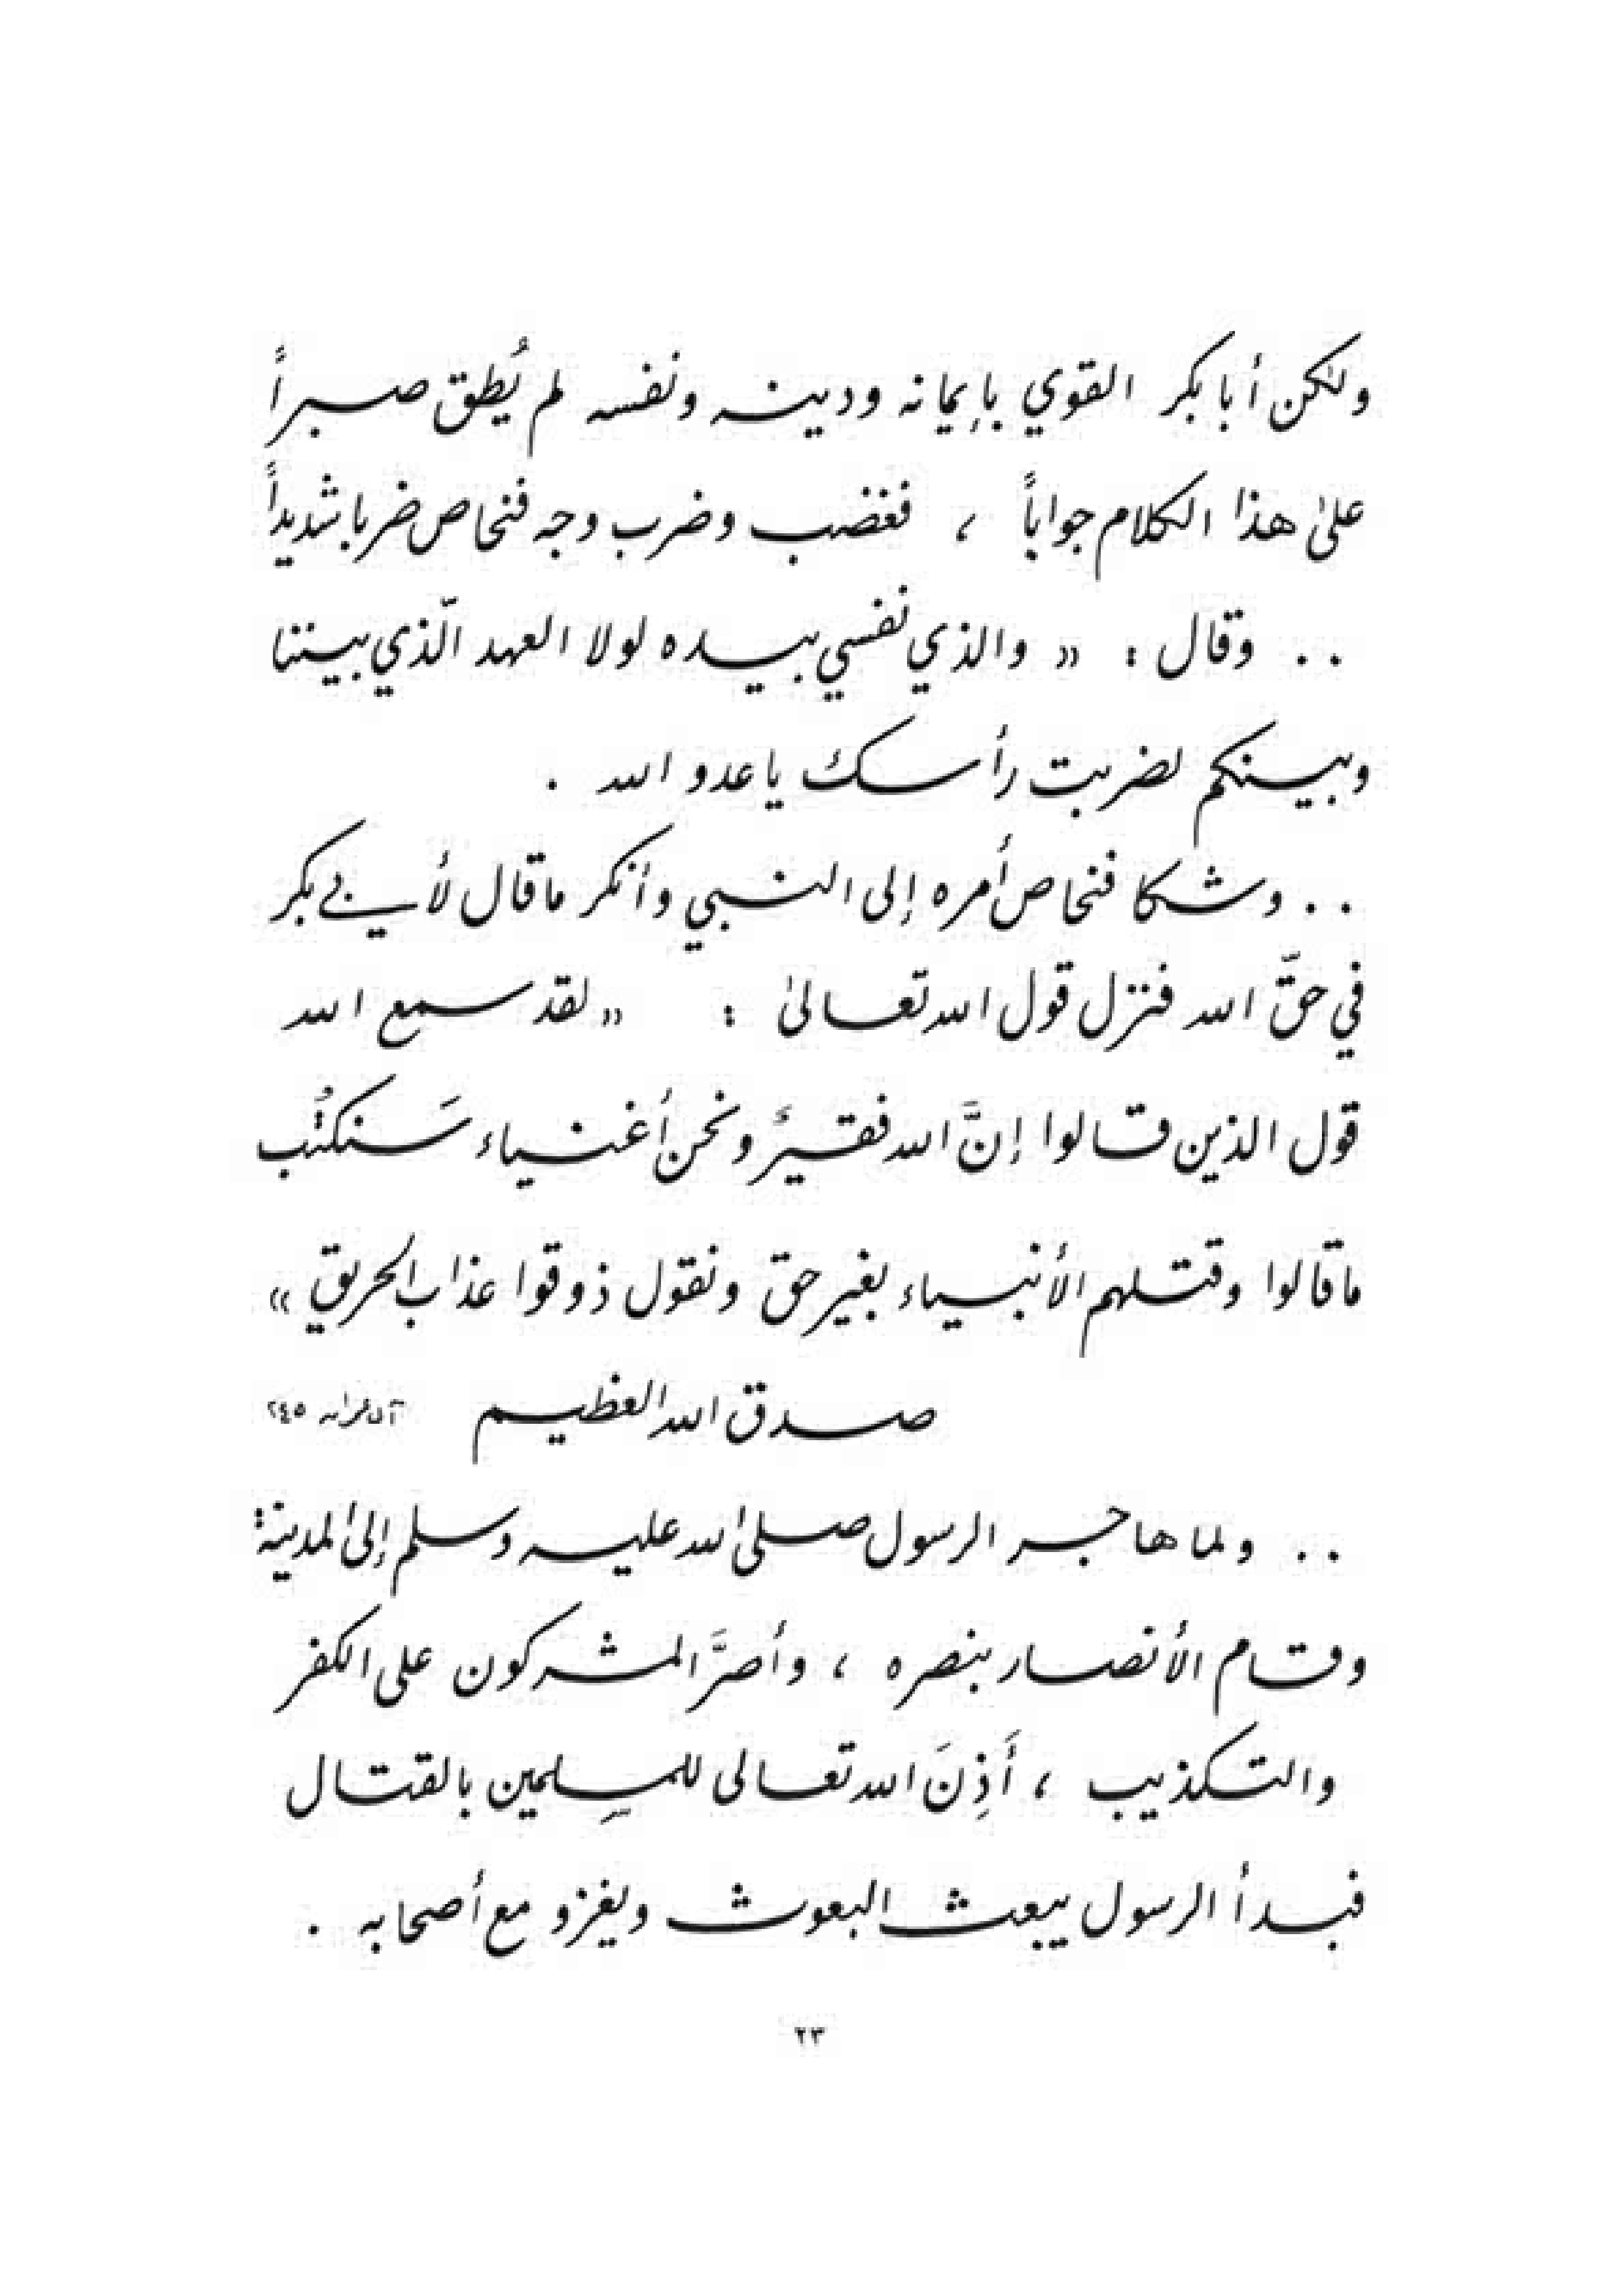 ولٰكن أبا بكر القوي بإيمانه ودينه ونفسه لم يُطق صبراً
علىٰ هذا الكلام جواباً ، فغضب وضرب وجه فنحاص ضربا شديداً
.. وقال : « والذي نفسي بيده لولا العهد الّذي بيننا
وبينكم لضربت رأسك يا عدو الله .
.. وشكا فنحاص أمره إلى النبي وأنكر ما قال لأبي بكر
في حقّ الله فنزل قول الله تعالىٰ : « لقد سمع الله
قول الذين قالوا إنَّ الله فقيرٌ ونحن أغنياء سَنكتُب
ما قالوا وقتلهم الأنبياء بغير حق ونقول ذوقوا عذاب الحريق »
صدق الله العظيم آل عمران ٢٤٥
.. ولما هاجر الرسول صلى الله عليه وسلم إلى المدينة
وقام الأنصار بنصره ، وأصرَّ المشركون على الكفر
والتكذيب ، أَذِنَ الله تعالى للمسلمين بالقتال
فبدأ الرسول يبعث البعوث ويغزو مع أصحابه .
٢٣